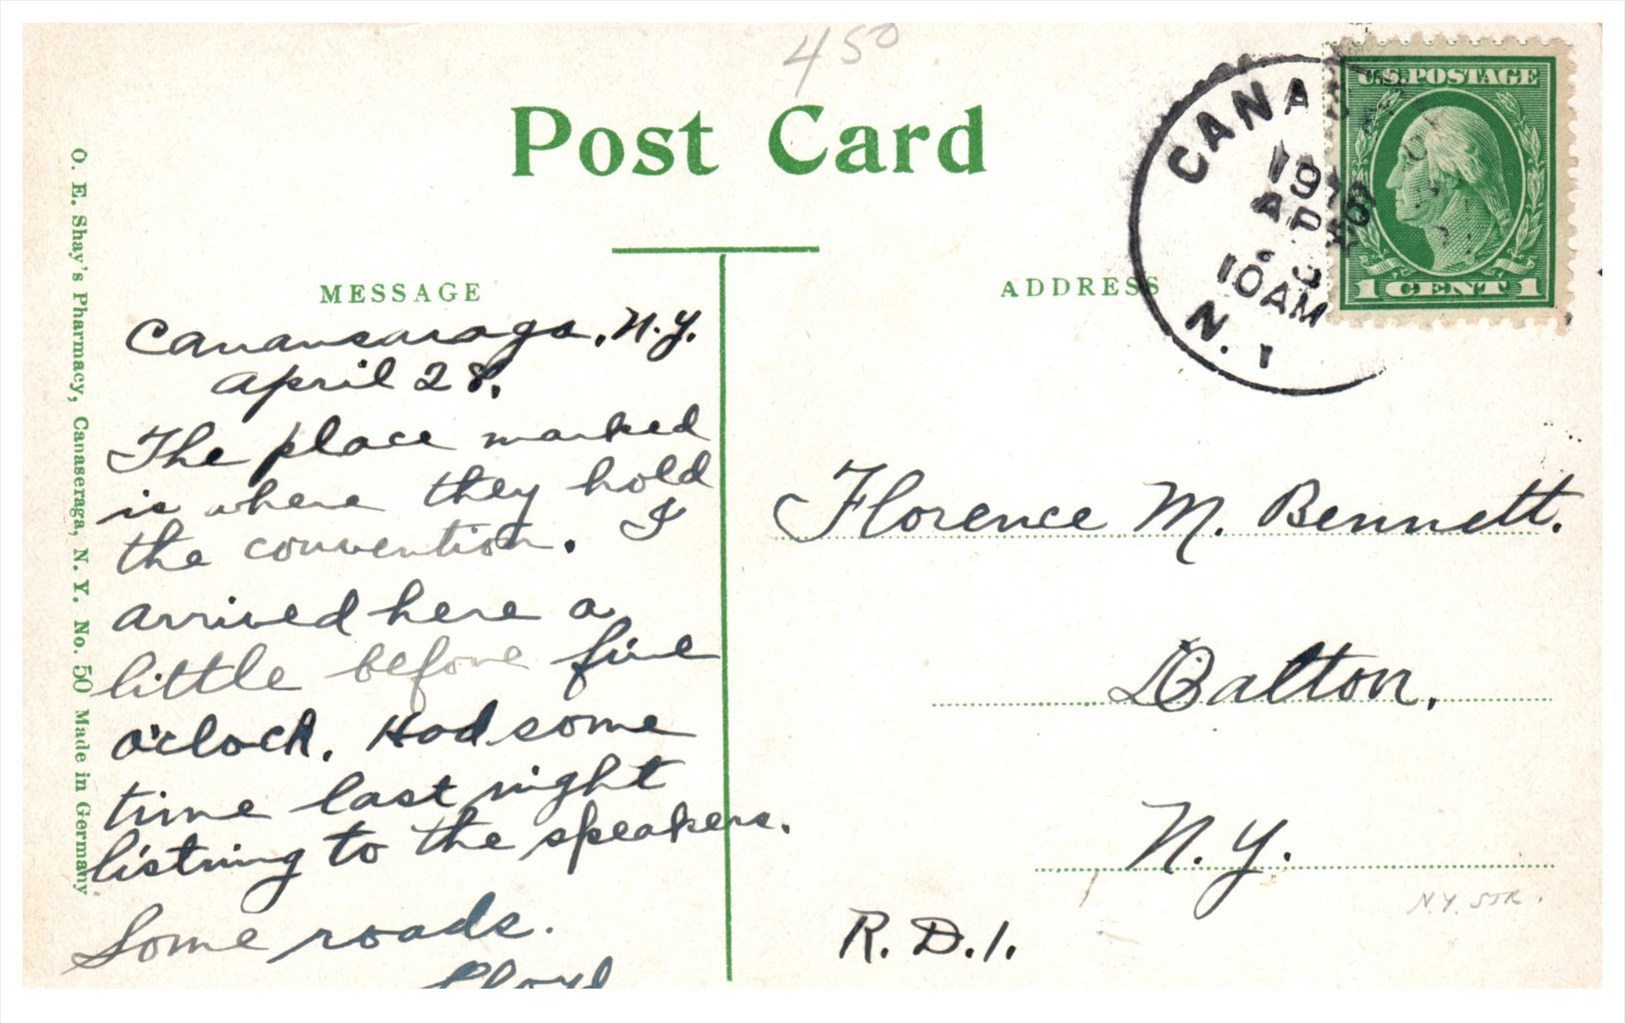 450
Post Card
O. E. Shay's Pharmacy, Canaseraga, N. Y. No. 50 Made in Germany
MESSAGE
Canansaraga, N.Y.
April 28,
The place marked
is where they hold
the convention. I
arrived here a
little before five
o'clock. Had some
time last night
listning to the speakers.
Some roads.
Lloyd
ADDRESS
CANA
AP
10AM
N. Y
U.S. POSTAGE
1 CENT 1
Florence M. Bennett.
Dalton,
N. Y.
R. D. 1.
N.Y. STR.